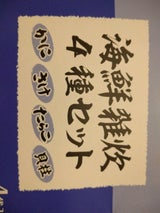 海鮮雑炊
4種セット
かに
さけ
たらこ
貝柱